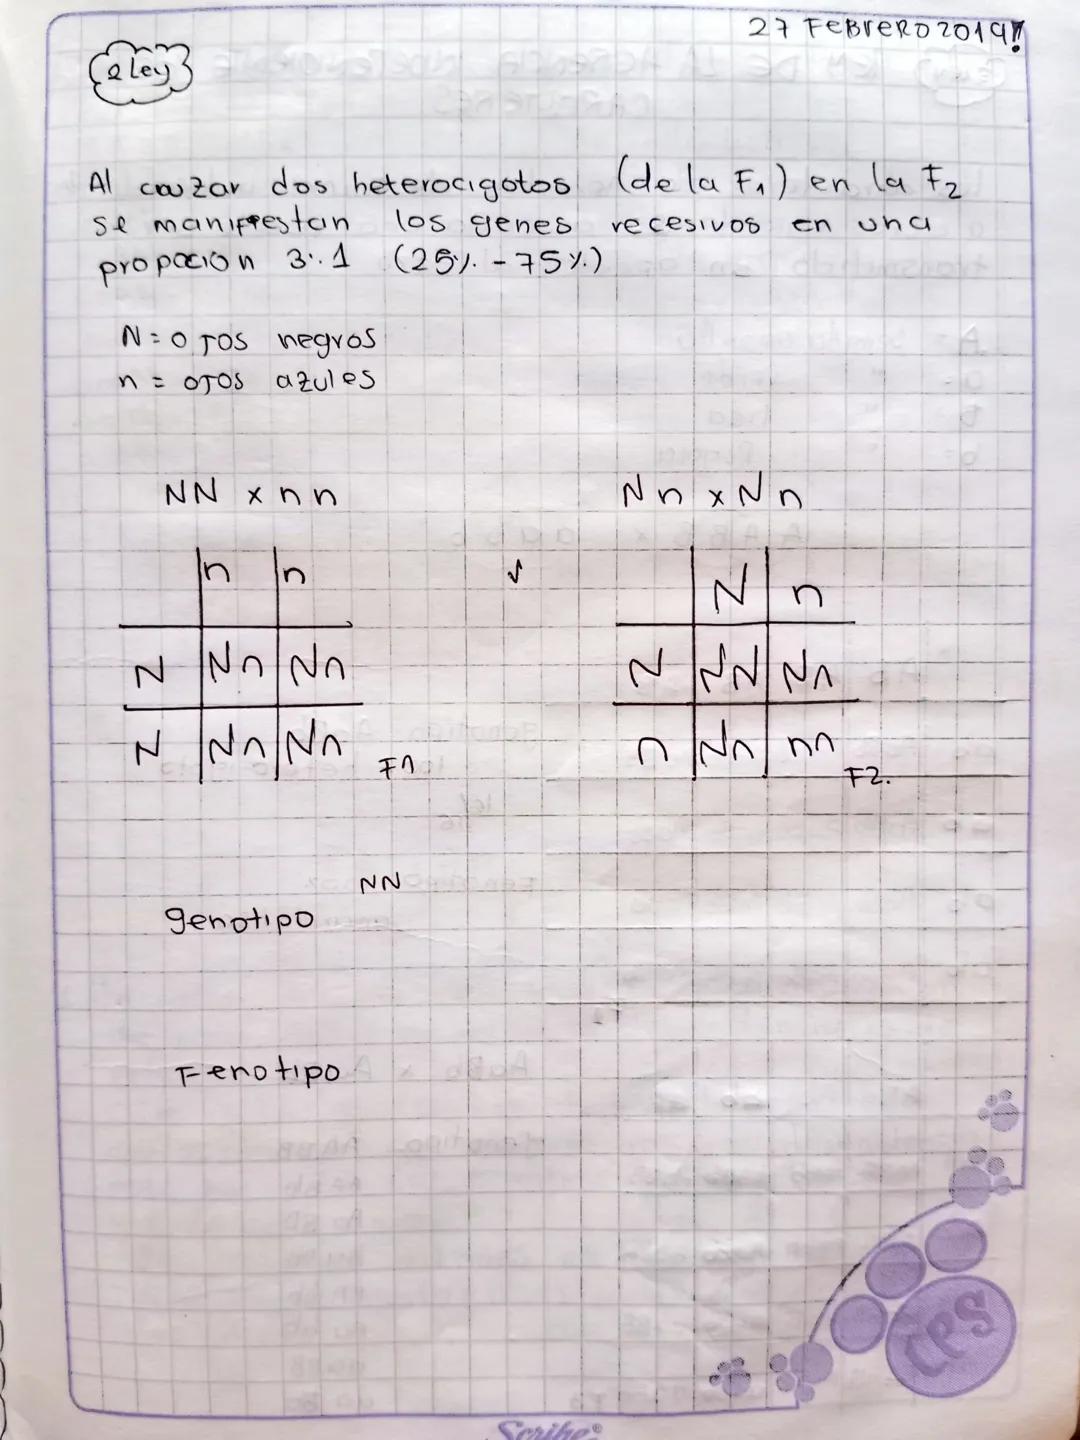 27 FEBRERO 2019!
2 Ley
Al cruzar dos heterocigotos (de la F1) en la F2
se manifiestan los genes recesivos en una
propocion 3:1 (25% - 75%)
N = OJOS negros
n = OJOS azules
NN x nn
Nn x Nn
n n
N n
N Nn Nn
N NN Nn
N Nn Nn F1
n Nn nn F2.
NN
genotipo
Fenotipo
CPS
Scribe®